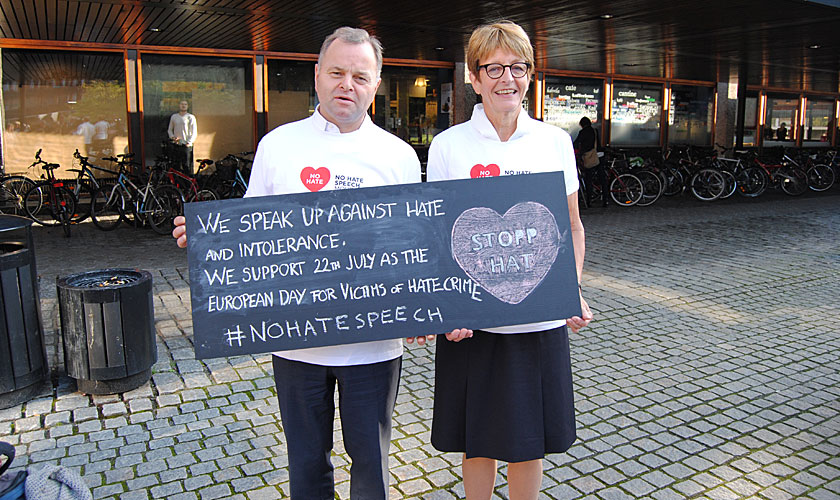 cafe
cantine
NO
HATE
NO HATE
SPEECH
NO
HATE
NO HATE
SPEECH
WE SPEAK UP AGAINST HATE
AND INTOLERANCE.
WE SUPPORT 22TH JULY AS THE
EUROPEAN DAY FOR VICTIMS OF HATECRIME
#NOHATESPEECH
STOPP
HAT